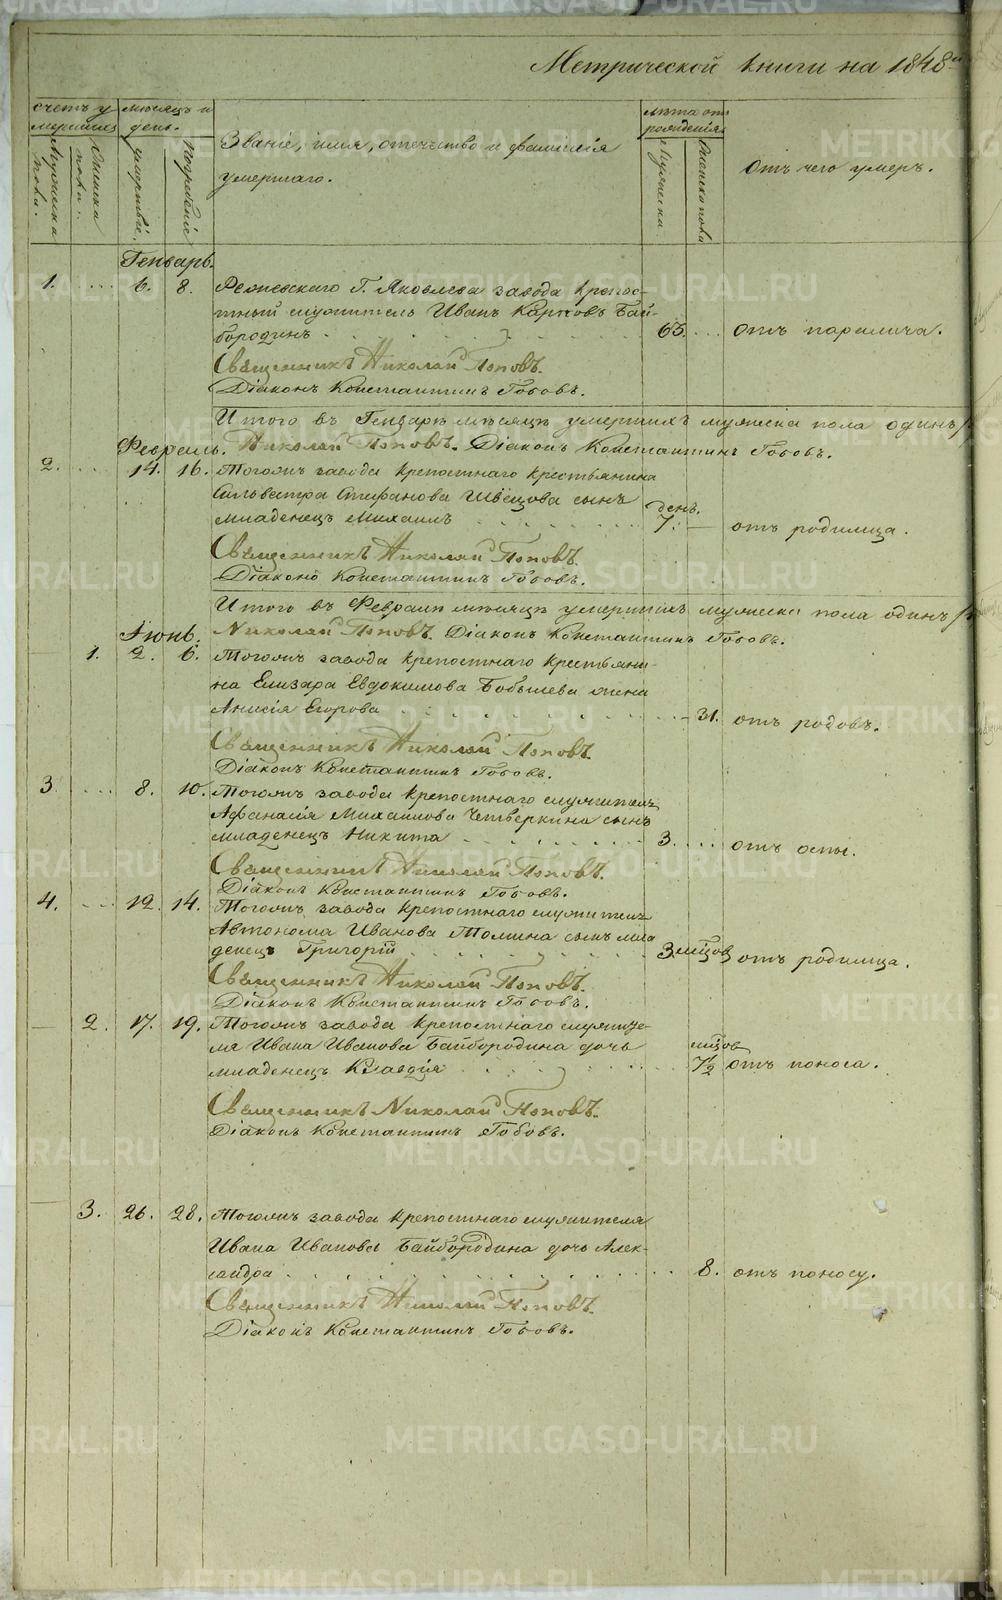 Метрической книги на 1848й
счетъ у мѣсяцъ и лѣта отъ
мершихъ день. рожденія
Званіе, имя, отечество и фамилія
умершаго.
Отъ чего умеръ.
Мужеска пола.
Женска пола.
смерти
Погребенія
Мужеска
Женска пола
Генварь.
1. .... 6. 8. Режевскаго Г. Яковлева завода крѣпос-
тный служитель Иванъ Карповъ Бай-
бородинъ 65. ... отъ паралича.
Священникъ Николай Поповъ.
Діаконъ Константинъ Гобовъ.
Итого въ Генварѣ мѣсяцѣ умершихъ мужеска пола одинъ
Февраль. Николай Поповъ. Діаконъ Константинъ Гобовъ.
2. .... 14. 16. Тогожъ завода крѣпостнаго крестьянина
Сильвестра Стефанова Швецова сынъ
младенецъ Михаилъ день. 7. — отъ родимца.
Священникъ Николай Поповъ.
Діаконъ Константинъ Гобовъ.
Итого въ Февралѣ мѣсяцѣ умершихъ мужеска пола одинъ
Іюнь. Николай Поповъ. Діаконъ Константинъ Гобовъ.
1. 2. 6. Тогожъ завода крѣпостнаго крестьяни-
на Елизара Евдокимова Бобылева жена
Анисія Егорова - 31. отъ родовъ.
Священникъ Николай Поповъ.
Діаконъ Константинъ Гобовъ.
3. .... 8. 10. Тогожъ завода крѣпостнаго служителя
Афанасія Михайлова Четверкина сынъ
младенецъ Никита 3. .... отъ оспы.
Священникъ Николай Поповъ.
Діаконъ Константинъ Гобовъ.
4. .... 12. 14. Тогожъ завода крѣпостнаго служителя
Автонома Иванова Томина сынъ мла
денецъ Григорій 3 мѣцов отъ родимца.
Священникъ Николай Поповъ.
Діаконъ Константинъ Гобовъ.
— 2. 17. 19. Тогожъ завода крѣпостнаго служите-
ля Ивана Иванова Байбородина дочь мѣцов
младенецъ Клавдія 7½ отъ поноса.
Священникъ Николай Поповъ.
Діаконъ Константинъ Гобовъ.
3. 26. 28. Тогожъ завода крѣпостнаго служителя
Ивана Иванова Байбородина дочь Алек-
сандра 8. отъ поносу.
Священникъ Николай Поповъ.
Діаконъ Константинъ Гобовъ.
METRIKI.GASO-URAL.RU